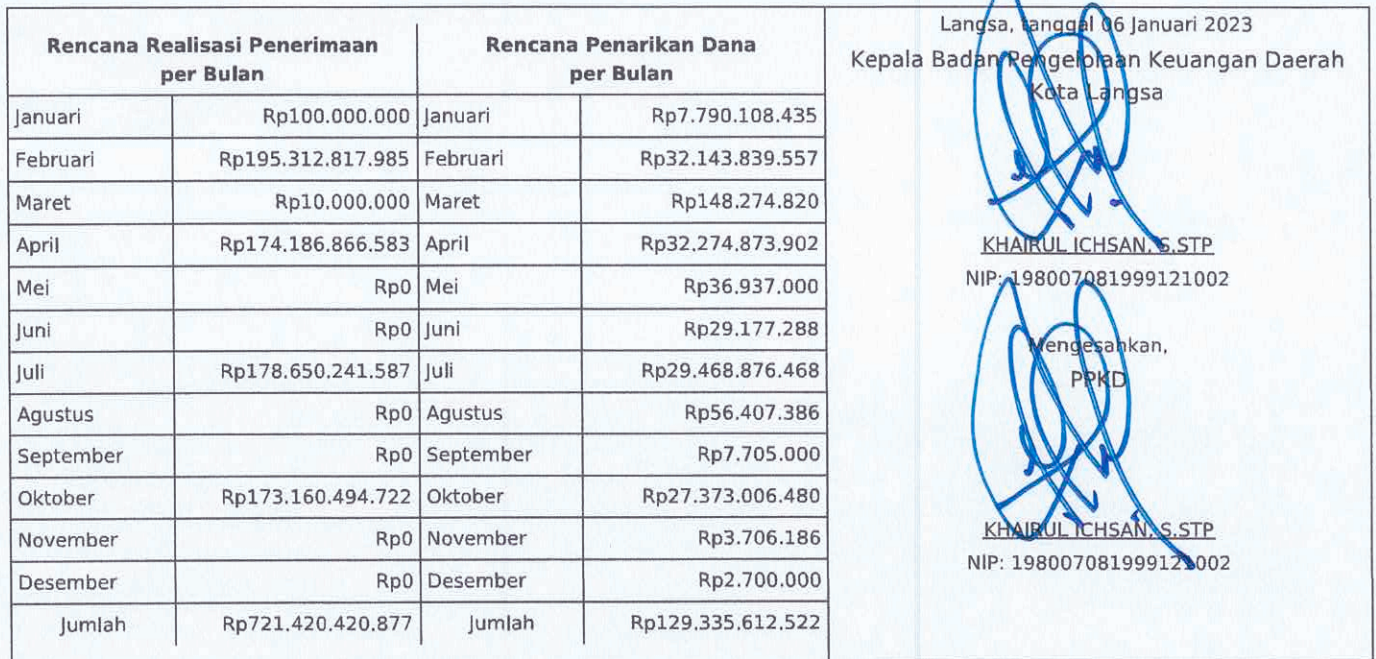 Rencana Realisasi Penerimaan per Bulan
Rencana Penarikan Dana per Bulan
Januari Rp100.000.000 Januari Rp7.790.108.435
Februari Rp195.312.817.985 Februari Rp32.143.839.557
Maret Rp10.000.000 Maret Rp148.274.820
April Rp174.186.866.583 April Rp32.274.873.902
Mei Rp0 Mei Rp36.937.000
Juni Rp0 Juni Rp29.177.288
Juli Rp178.650.241.587 Juli Rp29.468.876.468
Agustus Rp0 Agustus Rp56.407.386
September Rp0 September Rp7.705.000
Oktober Rp173.160.494.722 Oktober Rp27.373.006.480
November Rp0 November Rp3.706.186
Desember Rp0 Desember Rp2.700.000
Jumlah Rp721.420.420.877 Jumlah Rp129.335.612.522
Langsa, tanggal 06 Januari 2023
Kepala Badan Pengelolaan Keuangan Daerah
Kota Langsa
KHAIRUL ICHSAN, S.STP
NIP: 198007081999121002
Mengesahkan,
PPKD
KHAIRUL ICHSAN, S.STP
NIP: 198007081999121002